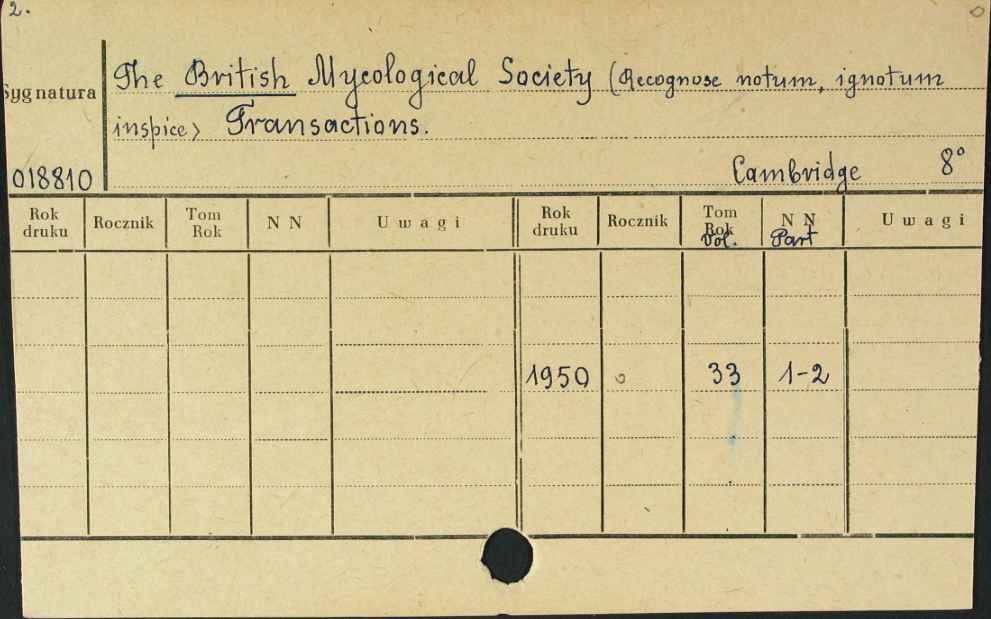 2.
The British Mycological Society (Recognose notum, ignotum
Sygnatura
inspice) Transactions.
018810
Cambridge 8°
Rok druku Rocznik Tom Rok N N Uwagi Rok druku Rocznik Tom Rok Vol. N N Part Uwagi
1950 33 1-2